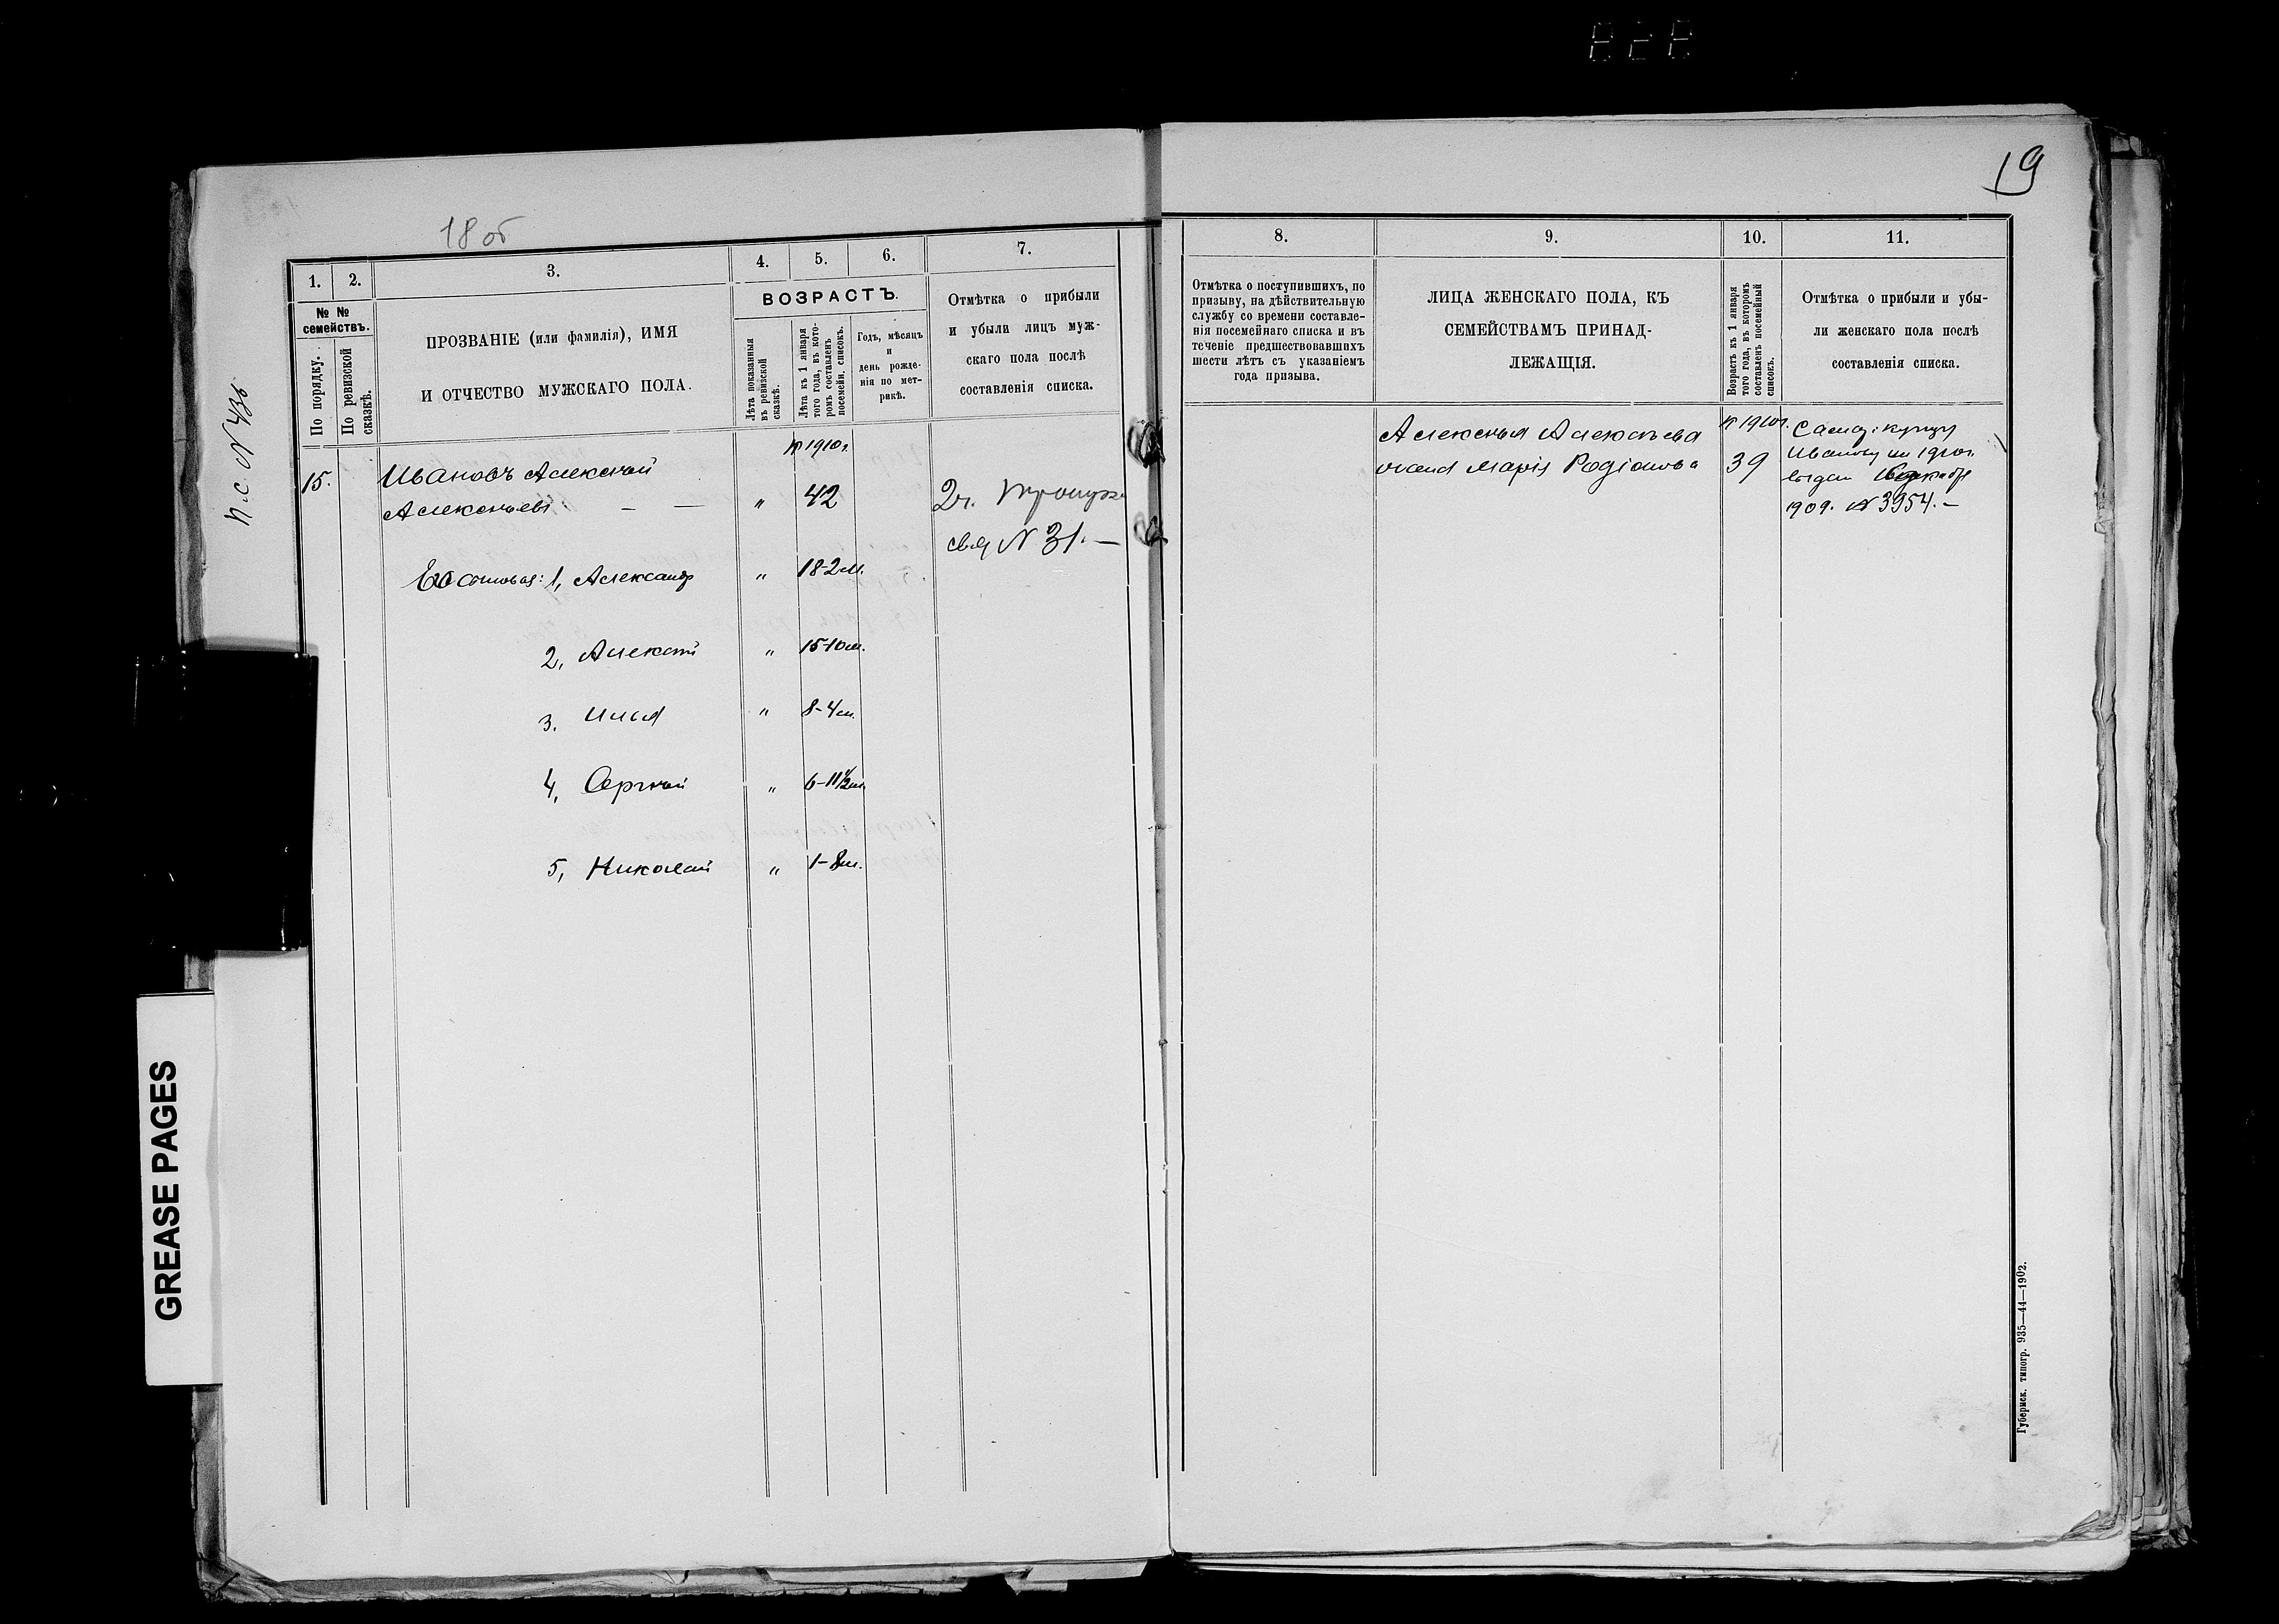 19
18 об
п.с. N 436
1.
2.
3.
4.
5.
6.
7.
№ №
семействъ.
По порядку.
По ревизской
сказкѣ.
ПРОЗВАНІЕ (или фамилія), ИМЯ
И ОТЧЕСТВО МУЖСКАГО ПОЛА.
ВОЗРАСТЪ.
Лѣта показанныя
въ ревизской
сказкѣ.
Лѣта къ 1 января
того года, въ кото-
ромъ составленъ
посемейн. списокъ.
Годъ, мѣсяцъ
и
день рожде-
нія по мет-
рикѣ.
Отмѣтка о прибыли
и убыли лицъ муж-
скаго пола послѣ
составленія списка.
1910г.
15.
Ивановъ Алексѣй
Алексѣевъ — — " 42
2г.
свид N 31.—
Его сыновья: 1, Александр " 18-2м.
2, Алексѣй " 15-10м.
3. Илья " 8-4м.
4, Сергѣй " 6-11½м.
5, Николай " 1-8м.
8.
9.
10.
11.
Отмѣтка о поступившихъ, по
призыву, на дѣйствительную
службу со времени составле-
нія посемейнаго списка и въ
теченіе предшествовавшихъ
шести лѣтъ съ указаніемъ
года призыва.
ЛИЦА ЖЕНСКАГО ПОЛА, КЪ
СЕМЕЙСТВАМЪ ПРИНАД-
ЛЕЖАЩІЯ.
Возрастъ къ 1 января
того года, въ которомъ
составленъ посемейный
списокъ.
Отмѣтка о прибыли и убы-
ли женскаго пола послѣ
составленія списка.
Алексѣя Алексѣева
жена Марія Родіонова
1910г.
39
купцу
Иванову на 1910г.
выдан декабря
1909. N 3954.—
Губернск. типогр. 935—44—1902.
GREASE PAGES